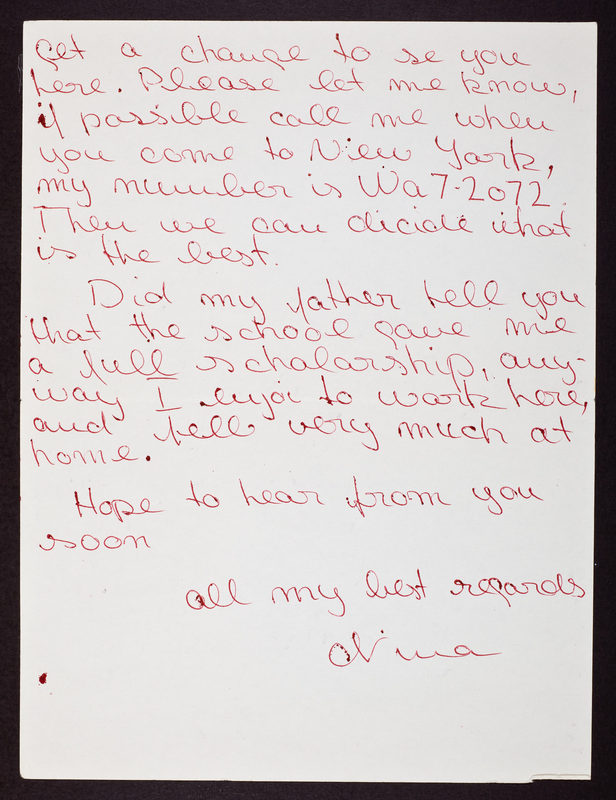 get a change to se you
here. Please let me know,
if possible call me when
you come to New York,
my number is Wa7-2072.
Then we can dicide what
is the best.
Did my father tell you
that the school gave me
a full scholarship, any-
way I enjoi to work here,
and fell very much at
home.
Hope to hear from you
soon
all my best regards
Nina